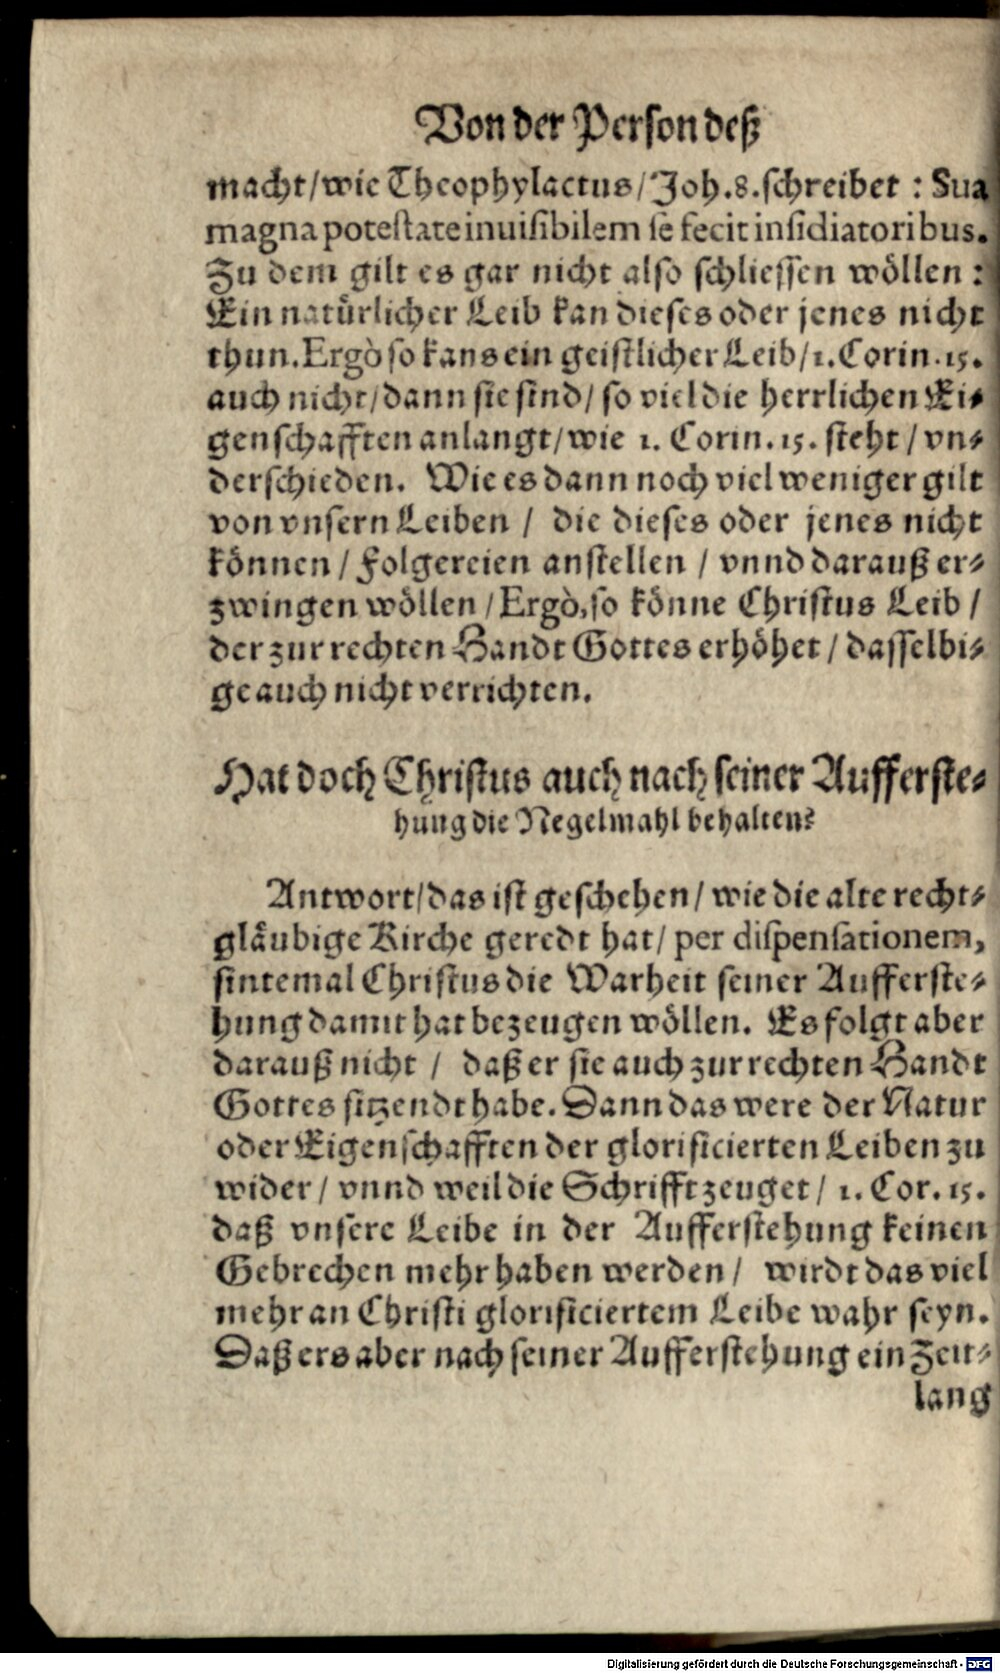 Von der Person deß
macht/wie Theophylactus/Joh.8.schreibet : Sua
magna potestate inuisibilem se fecit insidiatoribus.
Zu dem gilt es gar nicht also schliessen wöllen :
Ein natürlicher Leib kan dieses oder jenes nicht
thun. Ergò so kans ein geistlicher Leib/1. Corin. 15.
auch nicht/dann sie sind/ so viel die herrlichen Ei-
genschafften anlangt/wie 1. Corin. 15. steht / vn-
derschieden. Wie es dann noch viel weniger gilt
von vnsern Leiben / die dieses oder jenes nicht
können / Folgereien anstellen / vnnd darauß er-
zwingen wöllen / Ergò, so könne Christus Leib /
der zur rechten Handt Gottes erhöhet / dasselbi-
ge auch nicht verrichten.
Hat doch Christus auch nach seiner Aufferste-
hung die Negelmahl behalten?
Antwort/das ist geschehen / wie die alte recht-
gläubige Kirche geredt hat/ per dispensationem,
sintemal Christus die Warheit seiner Aufferste-
hung damit hat bezeugen wöllen. Es folgt aber
darauß nicht / daß er sie auch zur rechten Handt
Gottes sitzendt habe. Dann das were der Natur
oder Eigenschafften der glorificierten Leiben zu
wider / vnnd weil die Schrifft zeuget / 1. Cor. 15.
daß vnsere Leibe in der Aufferstehung keinen
Gebrechen mehr haben werden / wirdt das viel
mehr an Christi glorificiertem Leibe wahr seyn.
Daß ers aber nach seiner Aufferstehung ein Zeit-
lang
Digitalisierung gefördert durch die Deutsche Forschungsgemeinschaft - DFG